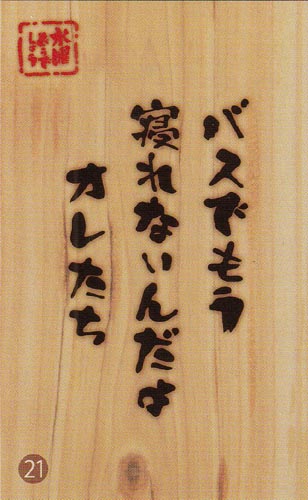 水曜
どうでしょう
バスでもう
寝れないんだよ
オレたち
21